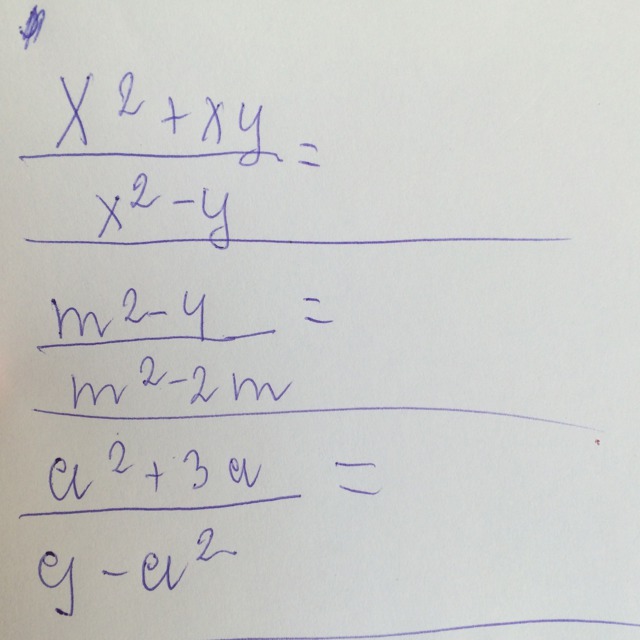 x² + xy =
x² - y
m² - 4 =
m² - 2m
a² + 3a =
9 - a²